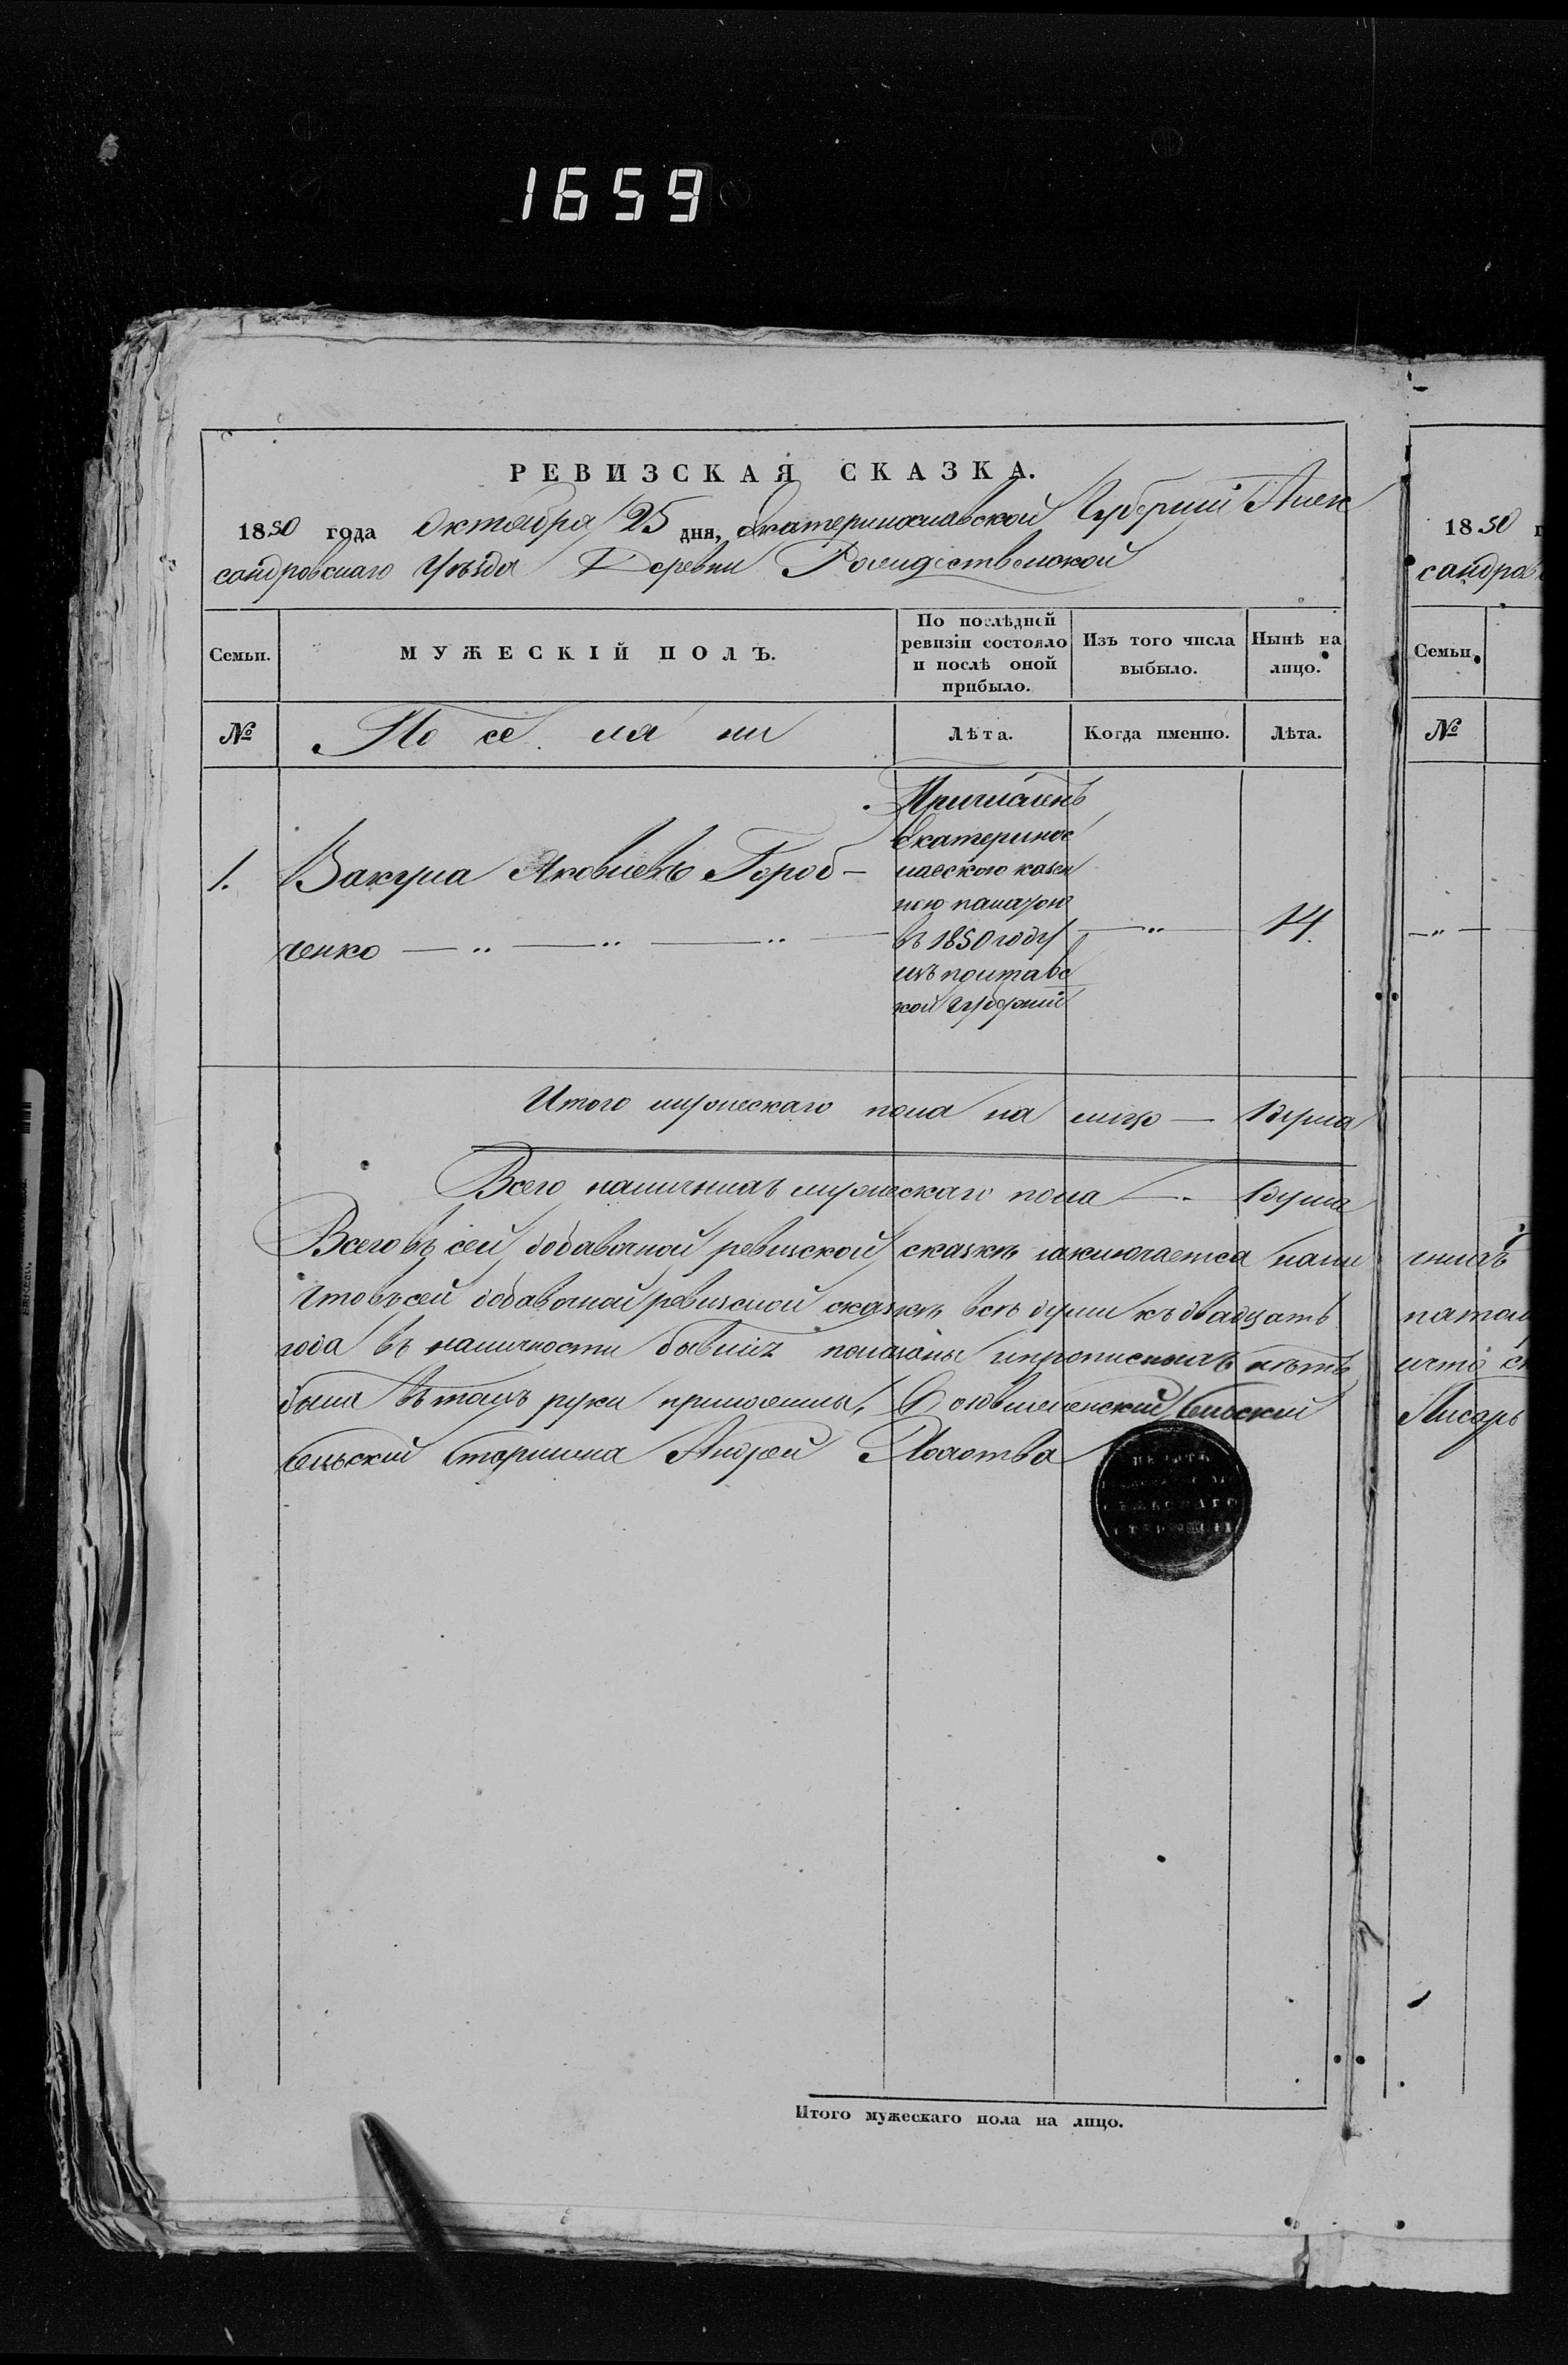 1659
РЕВИЗСКАЯ СКАЗКА.
1850 года Октября 25 дня, Екатеринославской Губерніи Алек
сандровскаго Уѣзда Деревни Рождественской
Семьи.
МУЖЕСКІЙ ПОЛЪ.
По послѣдней
ревизіи состояло
и послѣ оной
прибыло.
Изъ того числа
выбыло.
Нынѣ на
лицо.
№
Поселяни
Лѣта.
Когда именно.
Лѣта.
1.
Вакула Яковлевъ Гороб-
ченко
Причисленъ
Екатеринос
лавскою казен
ною палатою
въ 1850 году
изъ Полтавс
кой Губерніи
14.
Итого мужескаго пола на лицо — 1 душа
Всего наличныхъ мужескаго пола — 1 душа
Всего въ сей добавочной ревизской сказкѣ заключается нали
Что въ сей добавочной ревизской сказкѣ всѣ души къ двадцать
года въ наличности бывшіе показаны и прописныхъ нѣтъ
была въ томъ руки приложены, сельскій
сельскій Старшина Андрей
ПЕЧАТЬ
СЕЛЬСКАГО
СТАРШИНЫ
Итого мужескаго пола на лицо.
1850 г
сандров
Семьи.
№
чныхъ
Писарь